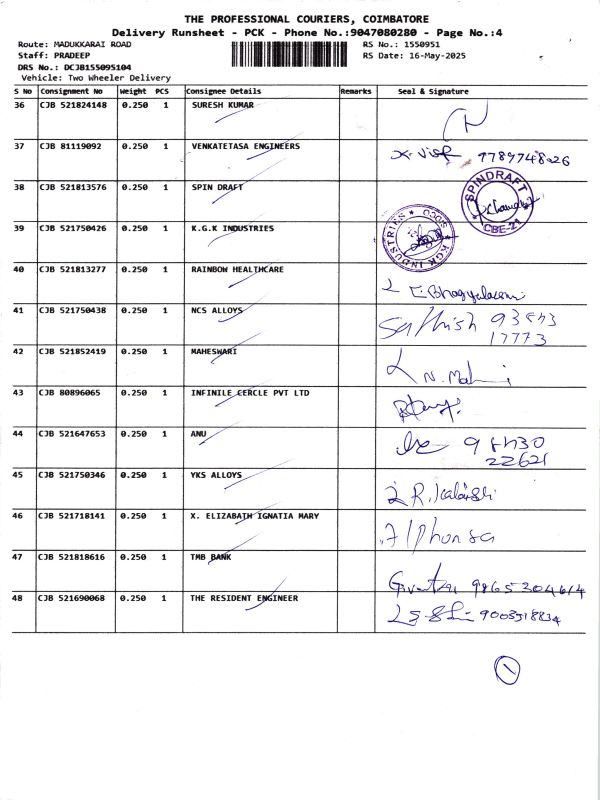 THE PROFESSIONAL COURIERS, COIMBATORE
Delivery Runsheet - PCK - Phone No.:9047080280 - Page No.:4
Route: MADUKKARAI ROAD RS No.: 1550951
Staff: PRADEEP RS Date: 16-May-2025
DRS No.: DCJB155095104
Vehicle: Two Wheeler Delivery
S No Consignment No Weight PCS Consignee Details Remarks Seal & Signature
36 CJB 521824148 0.250 1 SURESH KUMAR
37 CJB 81119092 0.250 1 VENKATETASA ENGINEERS
7789748026
38 CJB 521813576 0.250 1 SPIN DRAFT
SPINDRAFT CBE-21
39 CJB 521750426 0.250 1 K.G.K INDUSTRIES
KGK INDUSTRIES
40 CJB 521813277 0.250 1 RAINBOW HEALTHCARE
41 CJB 521750438 0.250 1 NCS ALLOYS
Sathish
17773
42 CJB 521852419 0.250 1 MAHESWARI
43 CJB 80896065 0.250 1 INFINILE CERCLE PVT LTD
44 CJB 521647653 0.250 1 ANU
22621
45 CJB 521750346 0.250 1 YKS ALLOYS
46 CJB 521718141 0.250 1 X. ELIZABATH IGNATIA MARY
Alphonsa
47 CJB 521818616 0.250 1 TMB BANK
9865304614
48 CJB 521690068 0.250 1 THE RESIDENT ENGINEER
9003518834
1